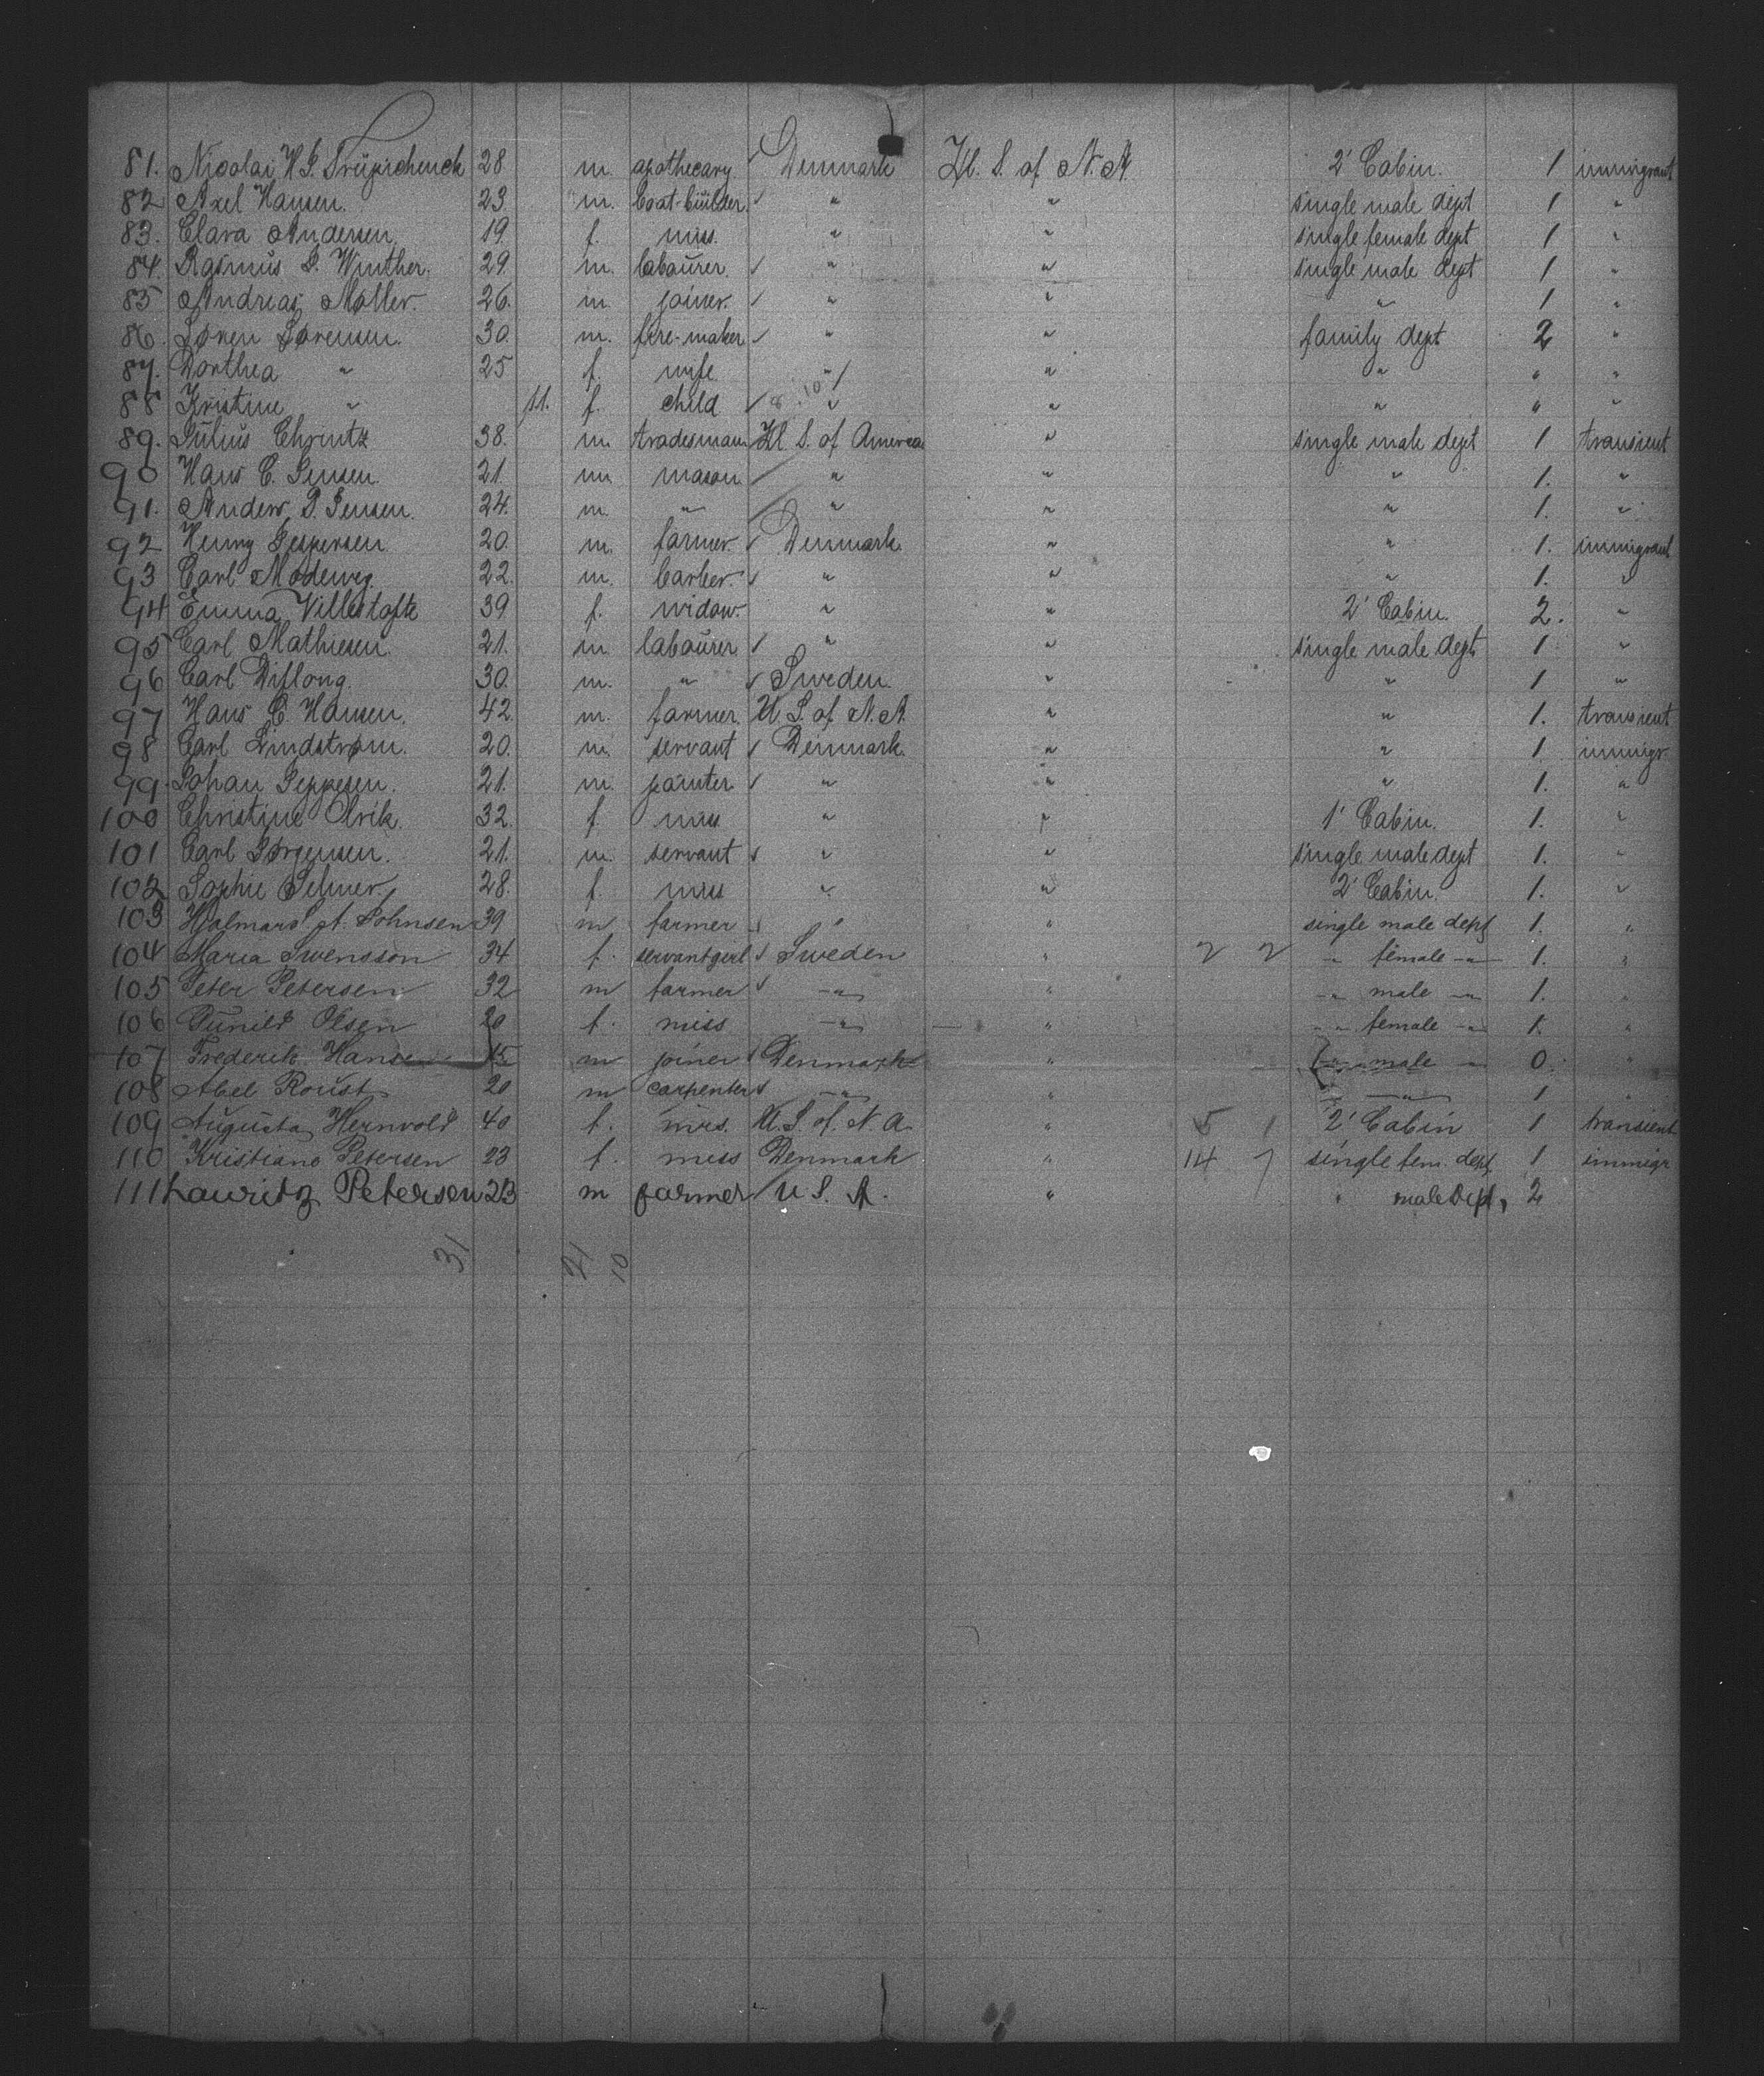 81. Nicolai H. J. 28 m. apothecary Denmark U. S. of N. A. 2' Cabin. 1 immigrant
82 Axel Hansen. 23 m. boat-builder. " " single male dept 1 "
83. Clara Andersen 19. f. miss. " " single female dept 1 "
84. Rasmus P. Winther. 29. m. labourer. " " single male dept 1 "
85 Andreas Møller. 26. m. joiner. " " " 1 "
86. Søren Sørensen. 30. m. " " family dept 2 "
87. Dorthea " 25 f. wife " " " " "
88 Kristine " 11. f. child " " " " "
89. Julius 38. m. tradesmann U. S. of America " single male dept 1 transient
90 Hans C. Jensen. 21. m. mason " " " 1. "
91. Anders. P. Jensen. 24. m. " " " " 1. "
92 Henny Jespersen. 20. m. farmer. Denmark. " " 1. immigrant
93 Carl Modeweg. 22. m. barber. " " " 1. "
94 Emma 39 f. widow. " " 2' Cabin. 2. "
95 Carl Mathiesen. 21. m. labourer " " single male dept 1 "
96 Carl 30. m. " Sweden. " " 1 "
97 Hans C. Hansen. 42. m. farmer. U. S. of N. A. " " 1. transient
98 Carl Lindstrøm. 20. m. servant Denmark. " " 1. immigr.
99. Johan Jeppesen. 21. m. painter " " " 1. "
100 Christine Olrik. 32. f. miss " " 1' Cabin. 1. "
101 Carl Jørgensen. 21. m. servant " " single male dept 1. "
102 Sophie Selmer. 28. f. miss " " 2' Cabin. 1. "
103 Hjalmar A. Johnsen 39 m farmer " " single male dept 1. "
104 Maria Swensson 34 f. servantgirl Sweden " 2 2 " female " 1. "
105 Peter Petersen 32 m farmer " " " male " 1. "
106 Gunild Olsen 20 f. miss " " " female " 1. "
107 Frederik Hansen 15 m joiner Denmark " " male " 0. "
108 Abel Roust 20 m carpenter " " " 1 "
109 Augusta Hernvold 40 f. mrs. U. S. of. N. A. " 5 1 2' Cabin 1 transient
110 Kristiane Petersen 23 f. miss Denmark " 14 7 single fem. dept 1 immigr
111 Lauritz Petersen 23 m farmer U S. A. " " male Dept, 2
31 21 10